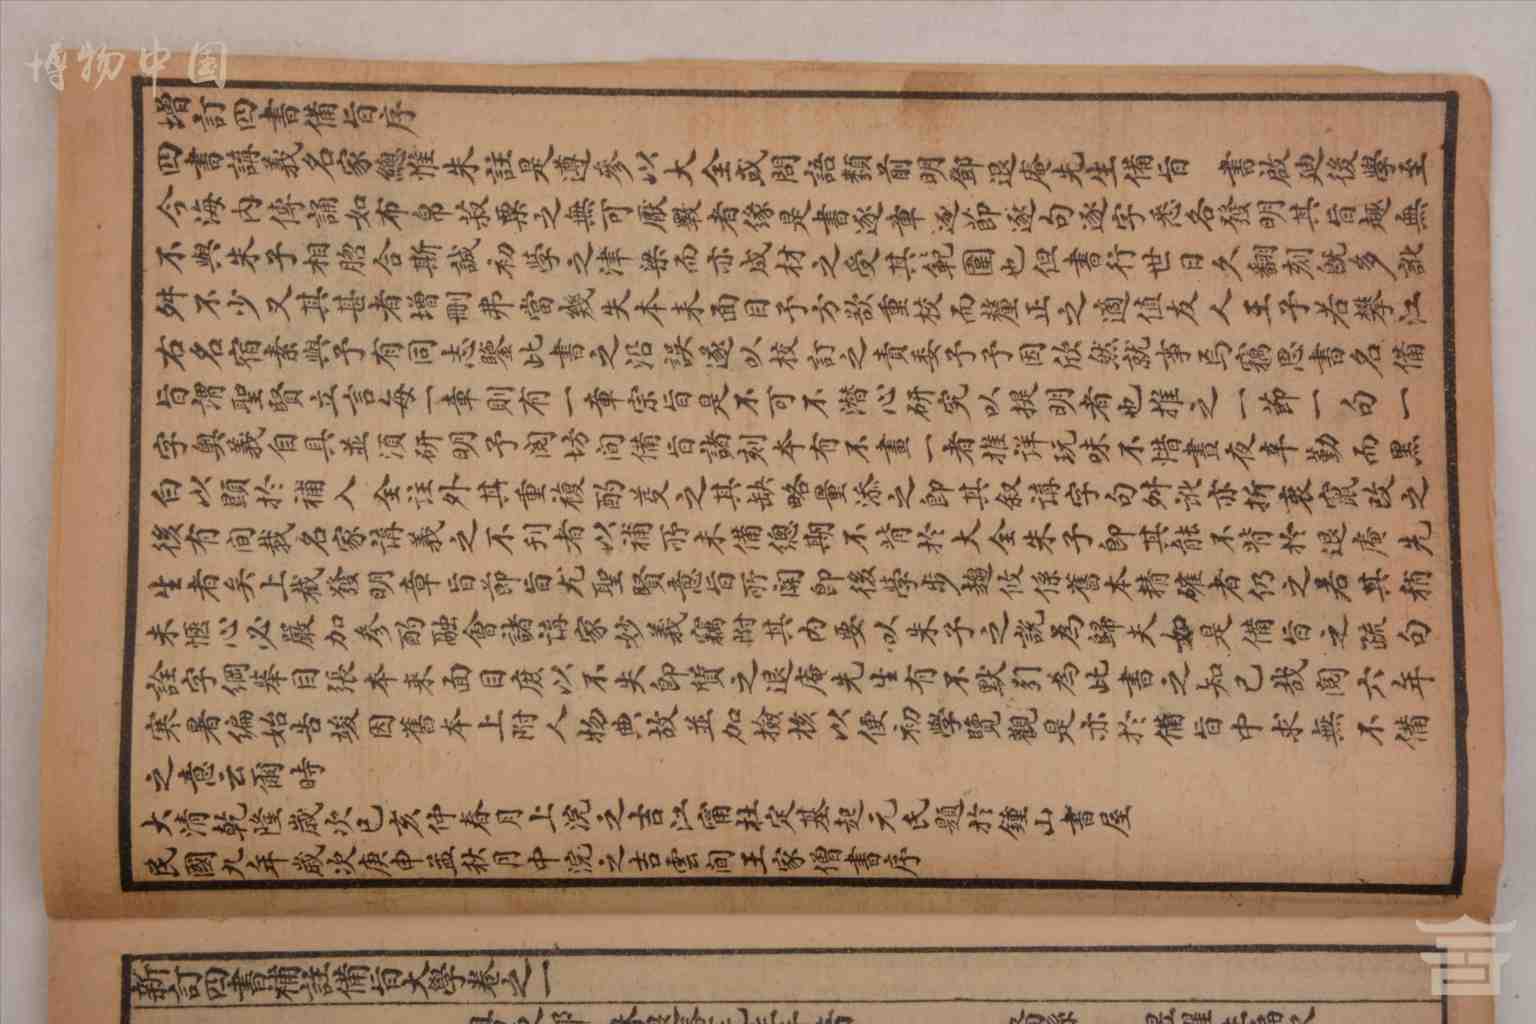 博物中国
增訂四書備旨序
四書講義名家總惟朱註是遵參以大全或問語類前明鄧退庵先生備旨 書啟迪後學至
今海內傳誦如布帛菽粟之無可厭斁者緣是書逐章逐節逐句逐字悉各發明其旨趣無
不與朱子相脗合斯誠初學之津梁而亦成材之受其範圍也但書行世日久翻刻既多訛
舛不少又其甚者增刪弗當幾失本來面目予方欲重校而釐正之適值友人王子若攀江
右名宿素與予有同志鑒此書之沿誤遂以校訂之責委予予因欣然就事焉竊思書名備
旨謂聖賢立言每一章則有一章宗旨是不可不潛心研究以提明者也推之一節一句一
字奧義自具並須研明予閱坊間備旨諸刻本有不畫一者推詳玩味不惜晝夜辛勤而黑
白以顯於補入全註外其重複酌芟之其缺略量添之即其敘講字句舛訛亦折衷竄改之
後有間載名家講義之不刊者以補所未備總期不背於大全朱子即其能不背於退庵先
生者矣上截發明章旨節旨尤聖賢意旨所關即後學步趨攸係舊本精確者仍之若其稍
未愜心必嚴加參酌融會諸講家妙義竊附其內要以朱子之說為歸夫如是備旨之疏句
詮字綱舉目張本來面目庶以不失即質之退庵先生有不默引為此書之知己哉閱六年
寒暑編始告竣因舊本上附人物典故並加撿核以便初學覽觀是亦於備旨中求無不備
之意云爾時
大清乾隆歲次己亥仲春月上浣之吉江甯杜定基起元氏題於鍾山書屋
民國九年歲次庚申孟秋月中浣之吉雲間王家僧書序
新訂四書補註備旨大學卷之一